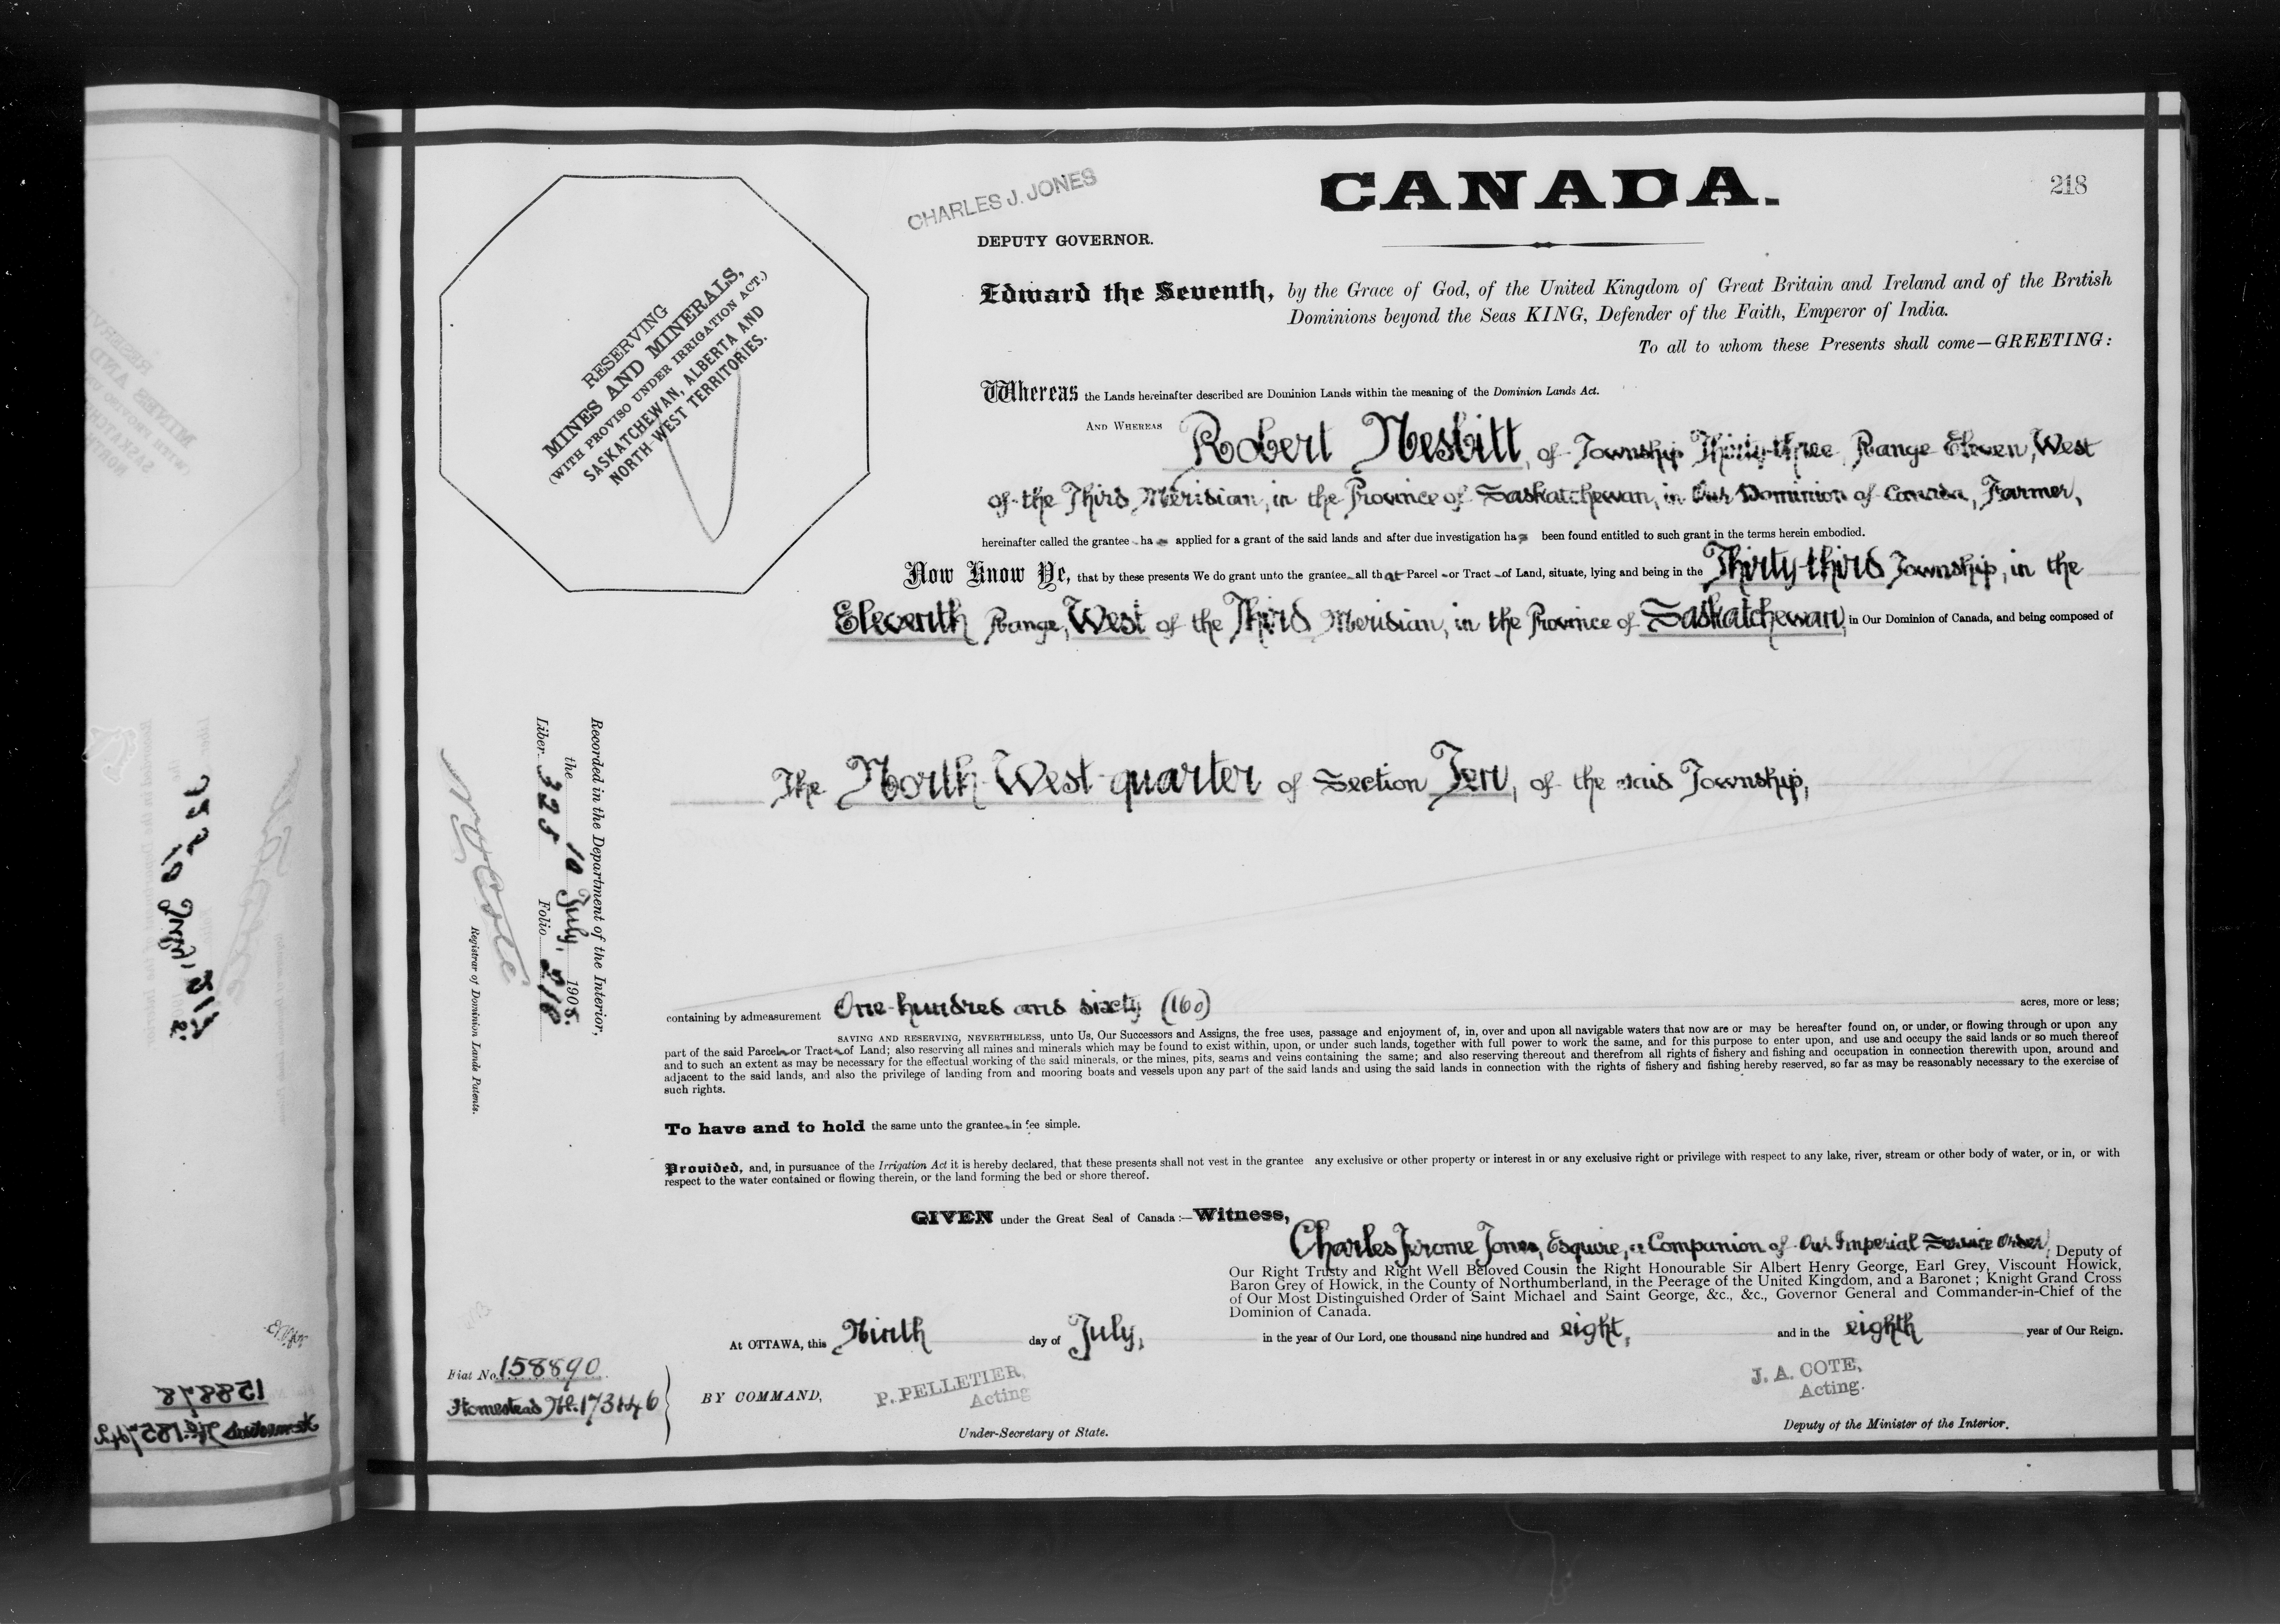 CHARLES J. JONES
CANADA.
218
DEPUTY GOVERNOR.
RESERVING
MINES AND MINERALS,
(WITH PROVISO UNDER IRRIGATION ACT.)
SASKATCHEWAN, ALBERTA AND
NORTH-WEST TERRITORIES.
Edward the Seventh, by the Grace of God, of the United Kingdom of Great Britain and Ireland and of the British
Dominions beyond the Seas KING, Defender of the Faith, Emperor of India.
To all to whom these Presents shall come—GREETING:
Whereas the Lands hereinafter described are Dominion Lands within the meaning of the Dominion Lands Act.
AND WHEREAS Robert Nesbitt, of Township Thirty-three, Range Eleven, West
of the Third Meridian, in the Province of Saskatchewan, in Our Dominion of Canada, Farmer,
hereinafter called the grantee has applied for a grant of the said lands and after due investigation has been found entitled to such grant in the terms herein embodied.
Now Know Ye, that by these presents We do grant unto the grantee all that Parcel or Tract of Land, situate, lying and being in the Thirty-third Township, in the
Eleventh Range, West of the Third Meridian, in the Province of Saskatchewan, in Our Dominion of Canada, and being composed of
The North-West quarter of Section Ten, of the said Township,
Recorded in the Department of the Interior,
the 10 July, 1908.
Liber 325 Folio 218
Registrar of Dominion Lands Patents.
containing by admeasurement One hundred and sixty (160) acres, more or less;
SAVING AND RESERVING, NEVERTHELESS, unto Us, Our Successors and Assigns, the free uses, passage and enjoyment of, in, over and upon all navigable waters that now are or may be hereafter found on, or under, or flowing through or upon any
part of the said Parcel or Tract of Land; also reserving all mines and minerals which may be found to exist within, upon, or under such lands, together with full power to work the same, and for this purpose to enter upon, and use and occupy the said lands or so much thereof
and to such an extent as may be necessary for the effectual working of the said minerals, or the mines, pits, seams and veins containing the same; and also reserving thereout and therefrom all rights of fishery and fishing and occupation in connection therewith upon, around and
adjacent to the said lands, and also the privilege of landing from and mooring boats and vessels upon any part of the said lands and using the said lands in connection with the rights of fishery and fishing hereby reserved, so far as may be reasonably necessary to the exercise of
such rights.
To have and to hold the same unto the grantee in fee simple.
Provided, and, in pursuance of the Irrigation Act it is hereby declared, that these presents shall not vest in the grantee any exclusive or other property or interest in or any exclusive right or privilege with respect to any lake, river, stream or other body of water, or in, or with
respect to the water contained or flowing therein, or the land forming the bed or shore thereof.
GIVEN under the Great Seal of Canada:—Witness,
Charles Jerome Jones, Esquire, a Companion of Our Imperial Service Order, Deputy of
Our Right Trusty and Right Well Beloved Cousin the Right Honourable Sir Albert Henry George, Earl Grey, Viscount Howick,
Baron Grey of Howick, in the County of Northumberland, in the Peerage of the United Kingdom, and a Baronet; Knight Grand Cross
of Our Most Distinguished Order of Saint Michael and Saint George, &c., &c., Governor General and Commander-in-Chief of the
Dominion of Canada.
At OTTAWA, this Ninth day of July, in the year of Our Lord, one thousand nine hundred and eight, and in the eighth year of Our Reign.
Fiat No. 158890
Homestead
BY COMMAND,
P. PELLETIER,
Acting
Under-Secretary of State.
J. A. COTE,
Acting.
Deputy of the Minister of the Interior.